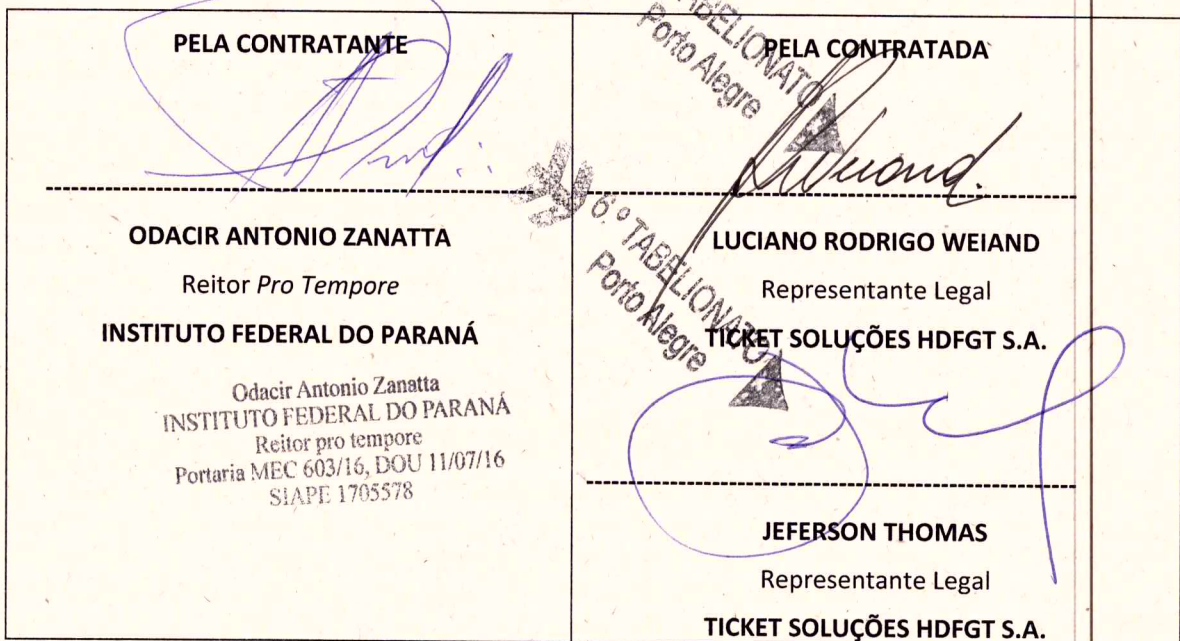 PELA CONTRATANTE
ODACIR ANTONIO ZANATTA
Reitor Pro Tempore
INSTITUTO FEDERAL DO PARANÁ
Odacir Antonio Zanatta
INSTITUTO FEDERAL DO PARANÁ
Reitor pro tempore
Portaria MEC 603/16, DOU 11/07/16
SIAPE 1705578
TABELIONATO
Porto Alegre
PELA CONTRATADA
6.º TABELIONATO
Porto Alegre
LUCIANO RODRIGO WEIAND
Representante Legal
TICKET SOLUÇÕES HDFGT S.A.
JEFERSON THOMAS
Representante Legal
TICKET SOLUÇÕES HDFGT S.A.